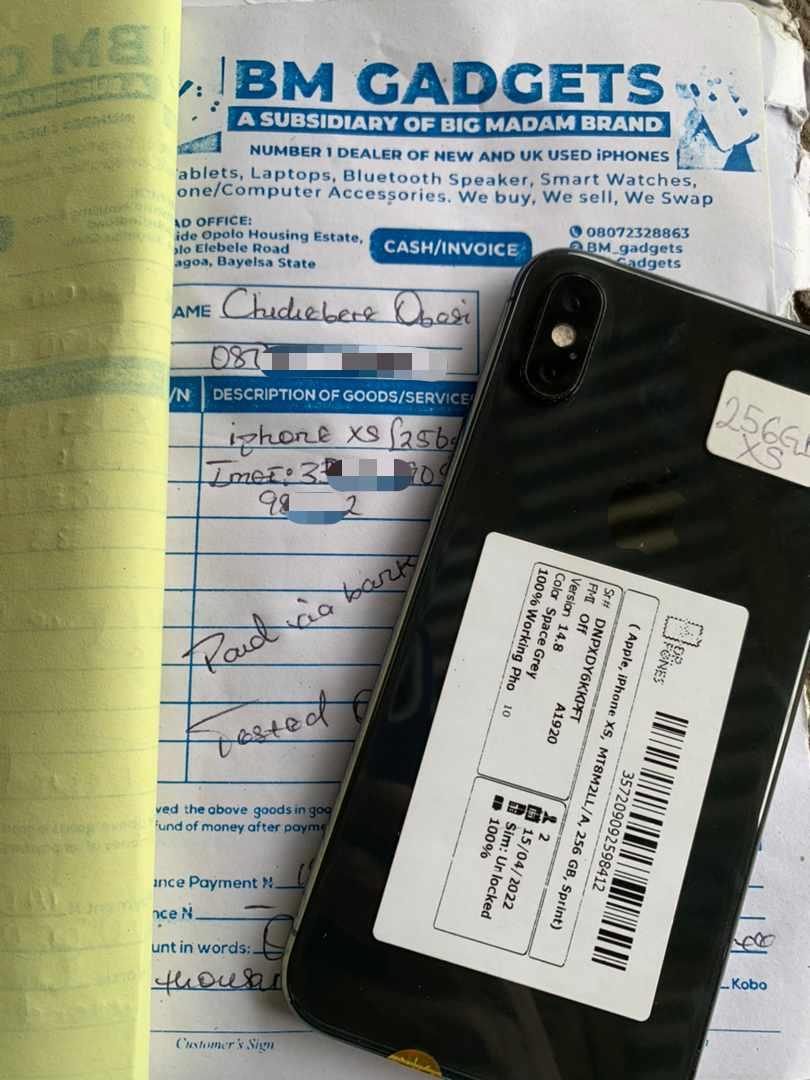 BM GADGETS
A SUBSIDIARY OF BIG MADAM BRAND
NUMBER 1 DEALER OF NEW AND UK USED iPHONES
ablets, Laptops, Bluetooth Speaker, Smart Watches,
one/Computer Accessories. We buy, We sell, We Swap
AD OFFICE:
ide Opolo Housing Estate,
olo Elebele Road
agoa, Bayelsa State
CASH/INVOICE
08072328863
BM_gadgets
Gadgets
AME Chidiebere Obasi
087
/N DESCRIPTION OF GOODS/SERVICE
iphone XS (256
Imei: 3 909
98 2
Paid via bank
Tested
ved the above goods in goo
fund of money after payme
ance Payment ₦
nce ₦
unt in words:
thousan
Kobo
Customer's Sign
256GB
XS
FONES
( Apple, iPhone XS, MT8M2LL/A, 256 GB, Sprint)
357209092598412
Sr# DNPXDY6KKQFT
FMI Off A1920
Version 14.8
Color Space Grey
100% Working Pho 10
2
15/04/2022
Sim: Unlocked
100%